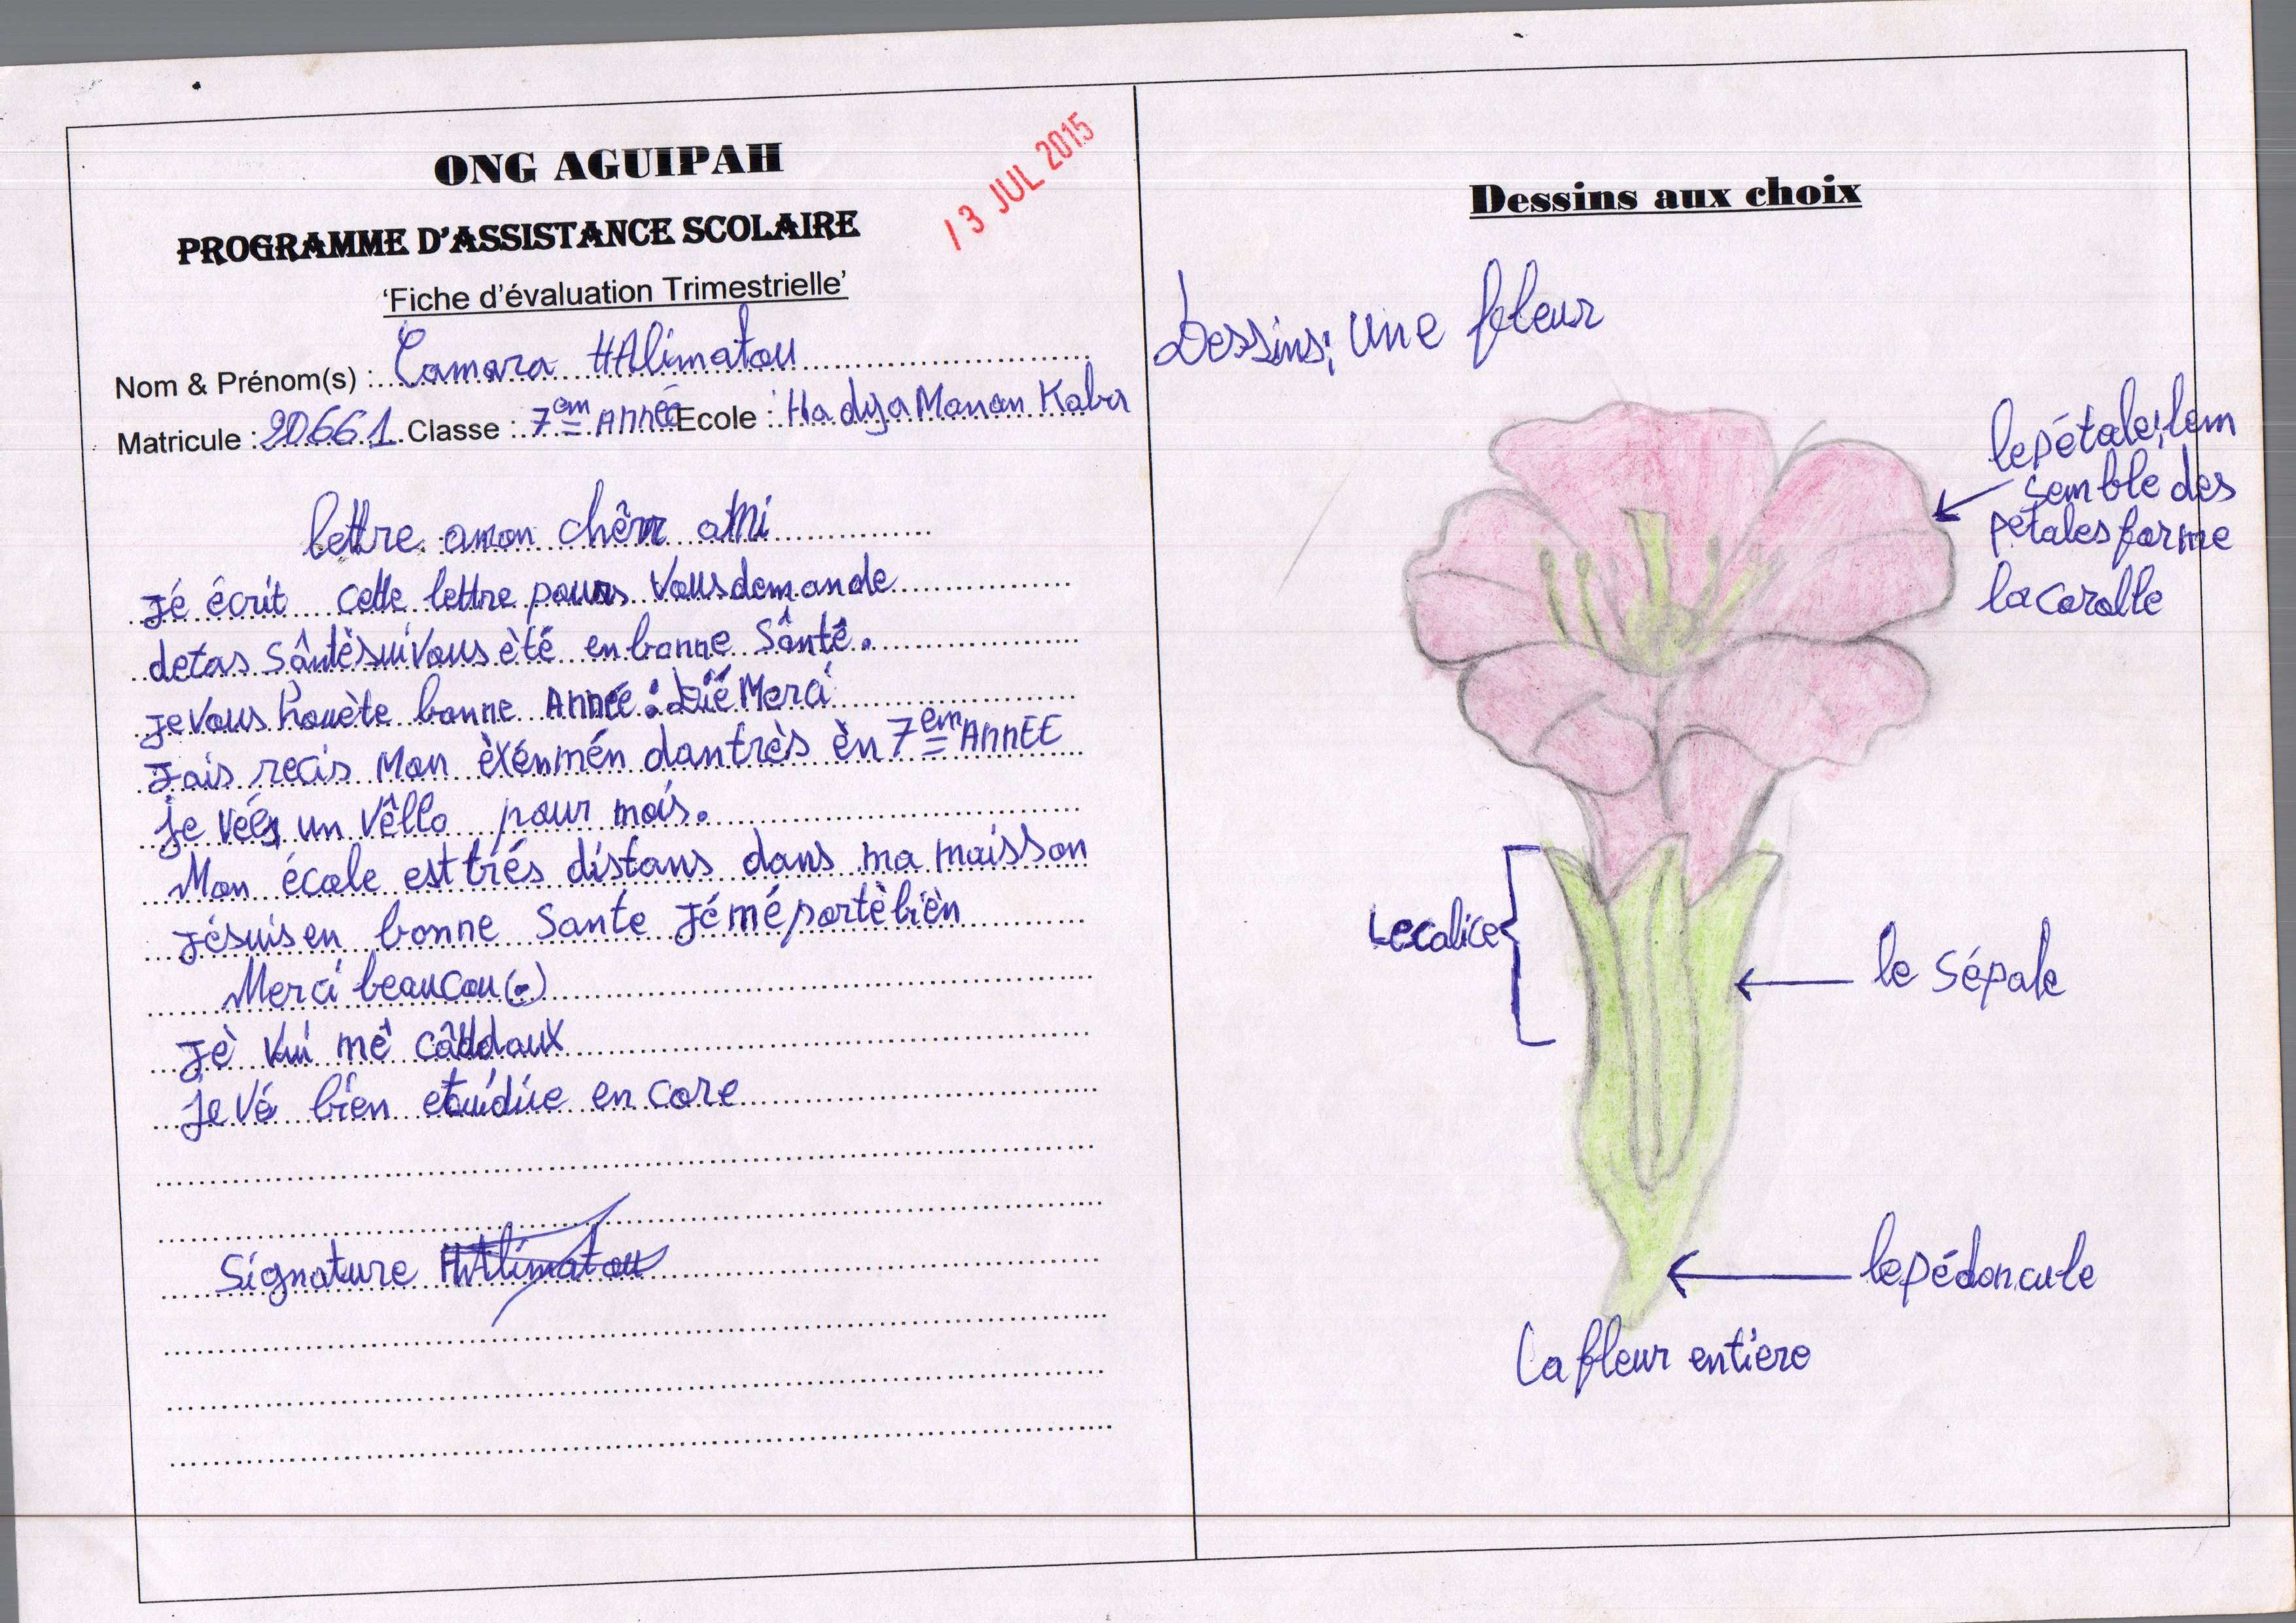 ONG AGUIPAH
PROGRAMME D'ASSISTANCE SCOLAIRE
13 JUL 2015
'Fiche d'évaluation Trimestrielle'
Nom & Prénom(s) : Camara HAlimatou
Matricule : 20661 Classe : 7em Année Ecole : Hadja Manan Kaba
lettre amon chêrr ami
Jé écrit cette lettre pours vous demande
detas Sântèsuivous èté en bonne Sânté.
je vous houète bonne Année: Dié Merci
Jais recis Mon èxénmén dantrès èn 7em ANNEE
je veés un vêllo pour mois.
Mon école est trés distans dans ma maisson
Jésuis en bonne Sante Jéméportèbièn
Merci beaucou(p)
Jè vui mé câddaux
je vé bien etuidiie en core
Signature HAlimatou
Dessins aux choix
Dessins; une feleur
le pétale; lem
semble des
pétales forme
la corolle
Le calice
le Sépale
le pédoncule
La fleur entiere